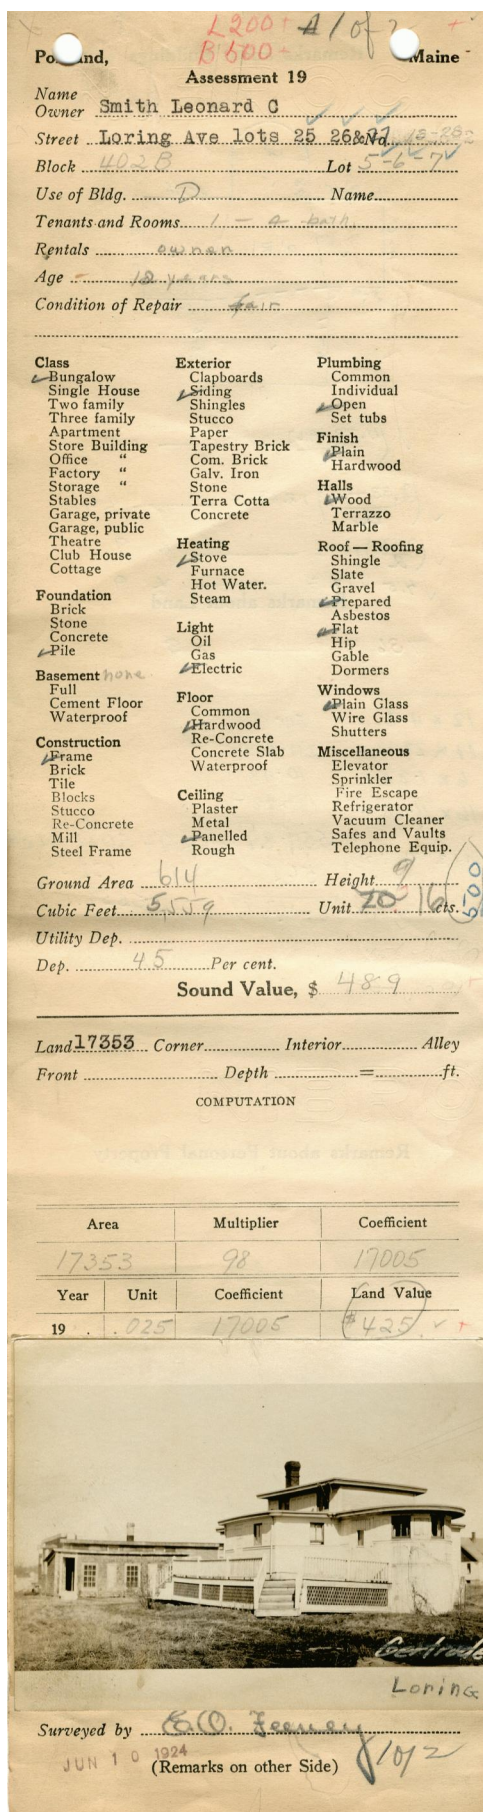 L200+ A 1 of 2 +
B500+
Portland, Maine
Assessment 19
Name
Owner Smith Leonard C
Street Loring Ave lots 25 26&27 No.
Block 402B Lot 5-6-7
Use of Bldg. D Name
Tenants and Rooms 1 - 4 bath
Rentals owner
Age 18 years
Condition of Repair fair
Class
Bungalow
Single House
Two family
Three family
Apartment
Store Building
Office "
Factory "
Storage "
Stables
Garage, private
Garage, public
Theatre
Club House
Cottage
Foundation
Brick
Stone
Concrete
Pile
Basement none
Full
Cement Floor
Waterproof
Construction
Frame
Brick
Tile
Blocks
Stucco
Re-Concrete
Mill
Steel Frame
Exterior
Clapboards
Siding
Shingles
Stucco
Paper
Tapestry Brick
Com. Brick
Galv. Iron
Stone
Terra Cotta
Concrete
Heating
Stove
Furnace
Hot Water.
Steam
Light
Oil
Gas
Electric
Floor
Common
Hardwood
Re-Concrete
Concrete Slab
Waterproof
Ceiling
Plaster
Metal
Panelled
Rough
Plumbing
Common
Individual
Open
Set tubs
Finish
Plain
Hardwood
Halls
Wood
Terrazzo
Marble
Roof — Roofing
Shingle
Slate
Gravel
Prepared
Asbestos
Flat
Hip
Gable
Dormers
Windows
Plain Glass
Wire Glass
Shutters
Miscellaneous
Elevator
Sprinkler
Fire Escape
Refrigerator
Vacuum Cleaner
Safes and Vaults
Telephone Equip.
Ground Area 614 Height 9
Cubic Feet 5,559 Unit 20 16 cts. 500
Utility Dep.
Dep. 45 Per cent.
Sound Value, $ 489
Land 17353 Corner Interior Alley
Front Depth = ft.
COMPUTATION
Area Multiplier Coefficient
17353 98 17005
Year Unit Coefficient Land Value
19 .025 17005 $425
Gertrude
Loring
Surveyed by E.O. Feeney
JUN 10 1924
(Remarks on other Side) 1 of 2